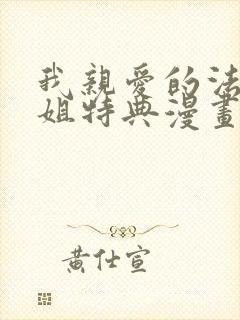 我親愛的法
姐特典漫畫
黄仕宣